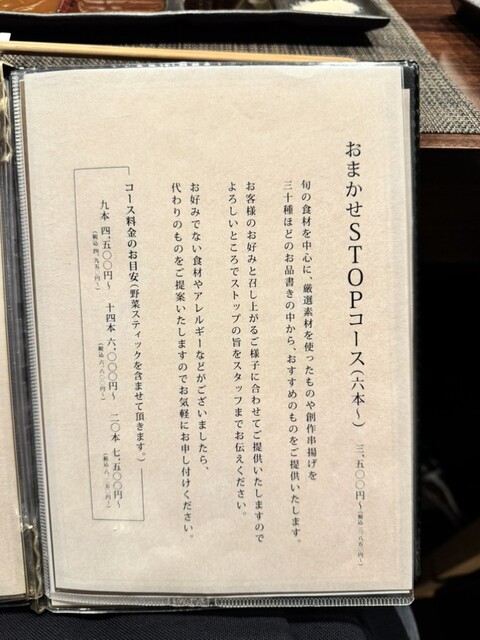 おまかせSTOPコース(六本〜) 三、五〇〇円〜(税込三、八五〇円〜)
旬の食材を中心に、厳選素材を使ったものや創作串揚げを
三十種ほどのお品書きの中から、おすすめのものをご提供いたします。
お客様のお好みと召し上がるご様子に合わせてご提供いたしますので
よろしいところでストップの旨をスタッフまでお伝えください。
お好みでない食材やアレルギーなどがございましたら、
代わりのものをご提案いたしますのでお気軽にお申し付けください。
コース料金のお目安(野菜スティックを含ませて頂きます。)
九本 四、五〇〇円〜 十四本 六、〇〇〇円〜 二〇本 七、五〇〇円〜
(税込四、九五〇円〜) (税込六、六〇〇円〜) (税込八、二五〇円〜)